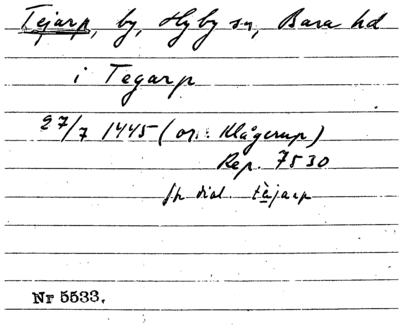 Tejarp, by, Hyby sn, Bara hd
i Tegarp
27/7 1445 (or: Klågerup)
Rep. 7530
fr dial. tèjarp
Nr 5533.